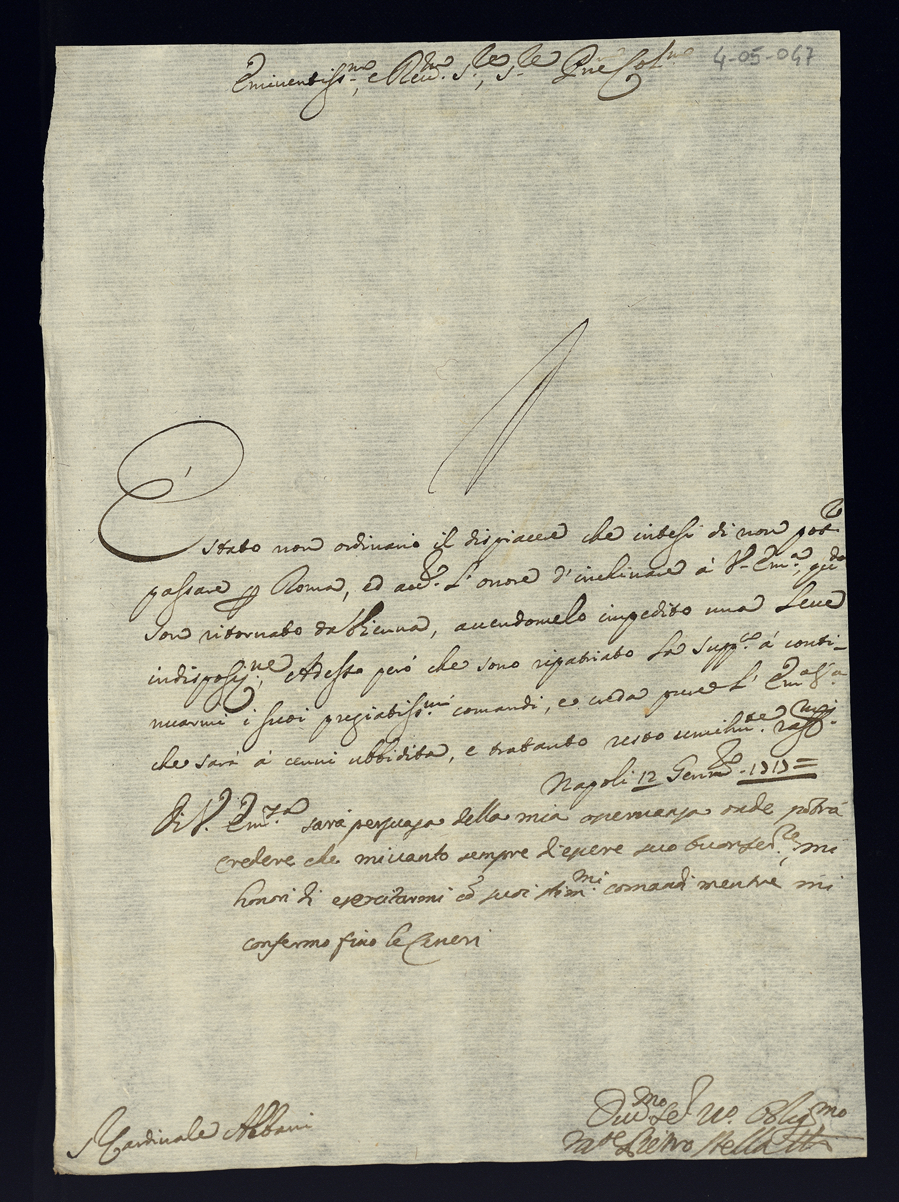 4-05-047
Eminentiss.mo, e Rev.mo S.re, S.re P.ne Col.mo
È stato non ordinario il dispiacere che intesi di non poter
passare p Roma, ed aver l'onore d'inclinare à V. Em.a, qdo
son ritornato da Vienna, avendomelo impedito una leve
indisposiz.ne, Adesso però che sono ripatriato La supp.co à conti-
nuarmi i suoi pregiatiss.mi comandi, e creda pure L'Em.a S.a
che sarà à cenni ubbidita, e trattanto resto umilm.te
Napoli 12 Genn.ro 1717=
Di V. Em.za sarà persuasa della mia osservanza onde potrà
credere che mi vanto sempre d'essere suo buon ser.re, mi
honori di esercitarmi co suoi stim.mi comandi mentre mi
confermo fino le Ceneri
S Cardinale Albani
Div.mo Se.re vo. Oblig.mo
Pietro Stella